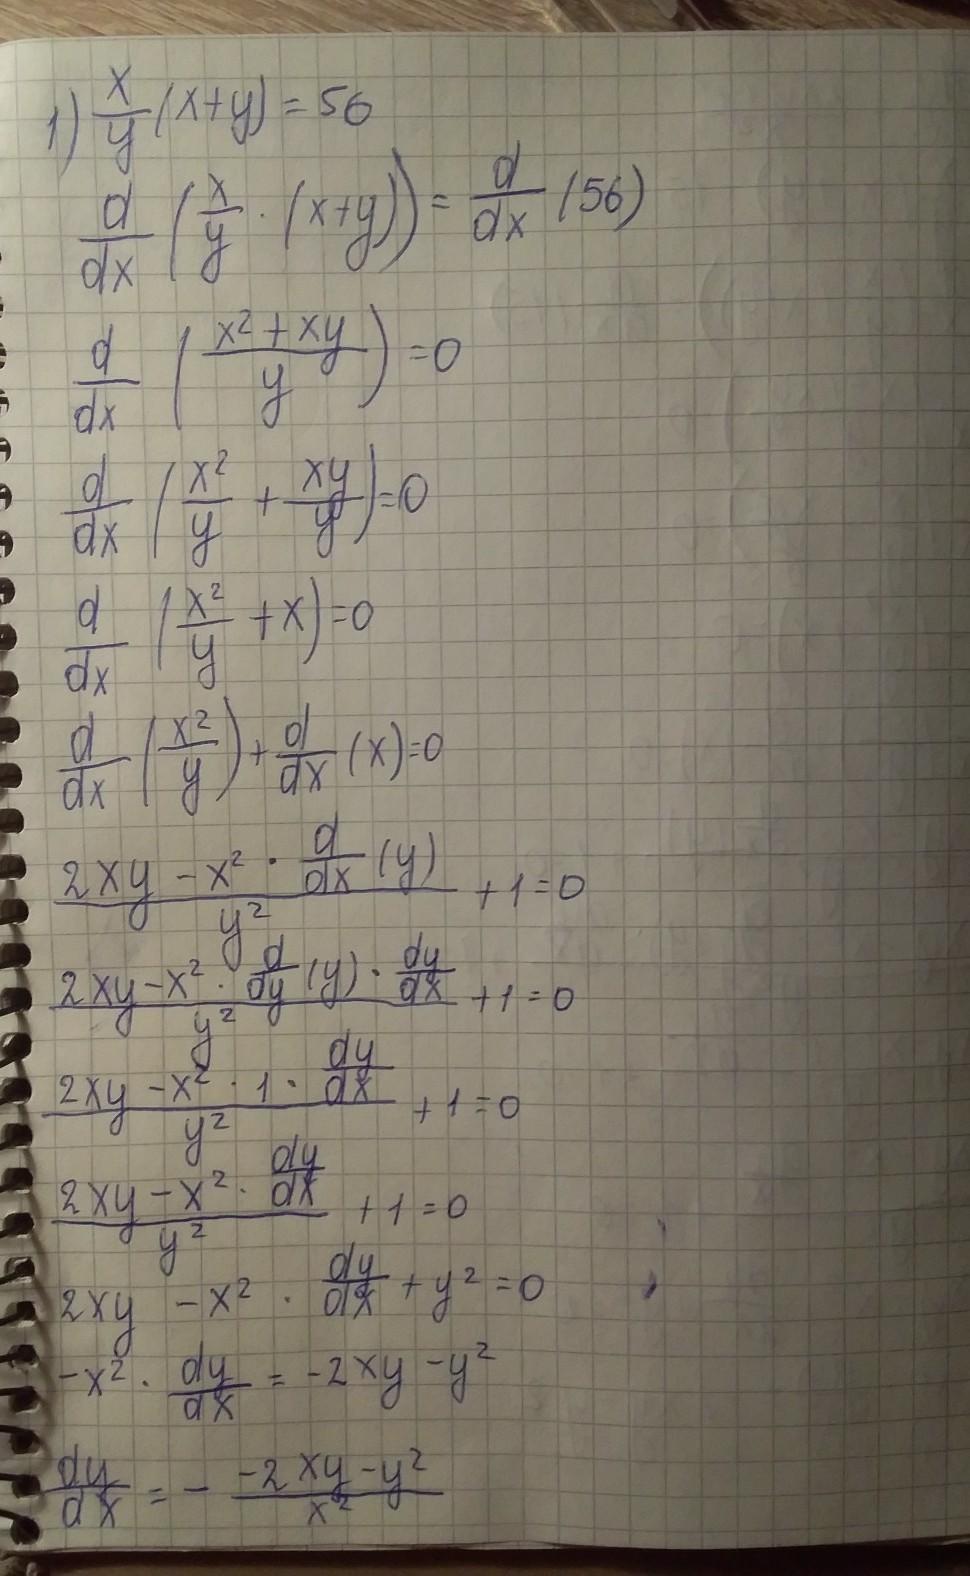 1) x/y (x+y) = 56
d/dx (x/y · (x+y)) = d/dx (56)
d/dx ((x² + xy)/y) = 0
d/dx (x²/y + xy/y) = 0
d/dx (x²/y + x) = 0
d/dx (x²/y) + d/dx (x) = 0
(2xy - x² · d/dx (y))/y² + 1 = 0
(2xy - x² · d/dy (y) · dy/dx)/y² + 1 = 0
(2xy - x² · 1 · dy/dx)/y² + 1 = 0
(2xy - x² · dy/dx)/y² + 1 = 0
2xy - x² · dy/dx + y² = 0
-x² · dy/dx = -2xy - y²
dy/dx = - (-2xy - y²)/x²